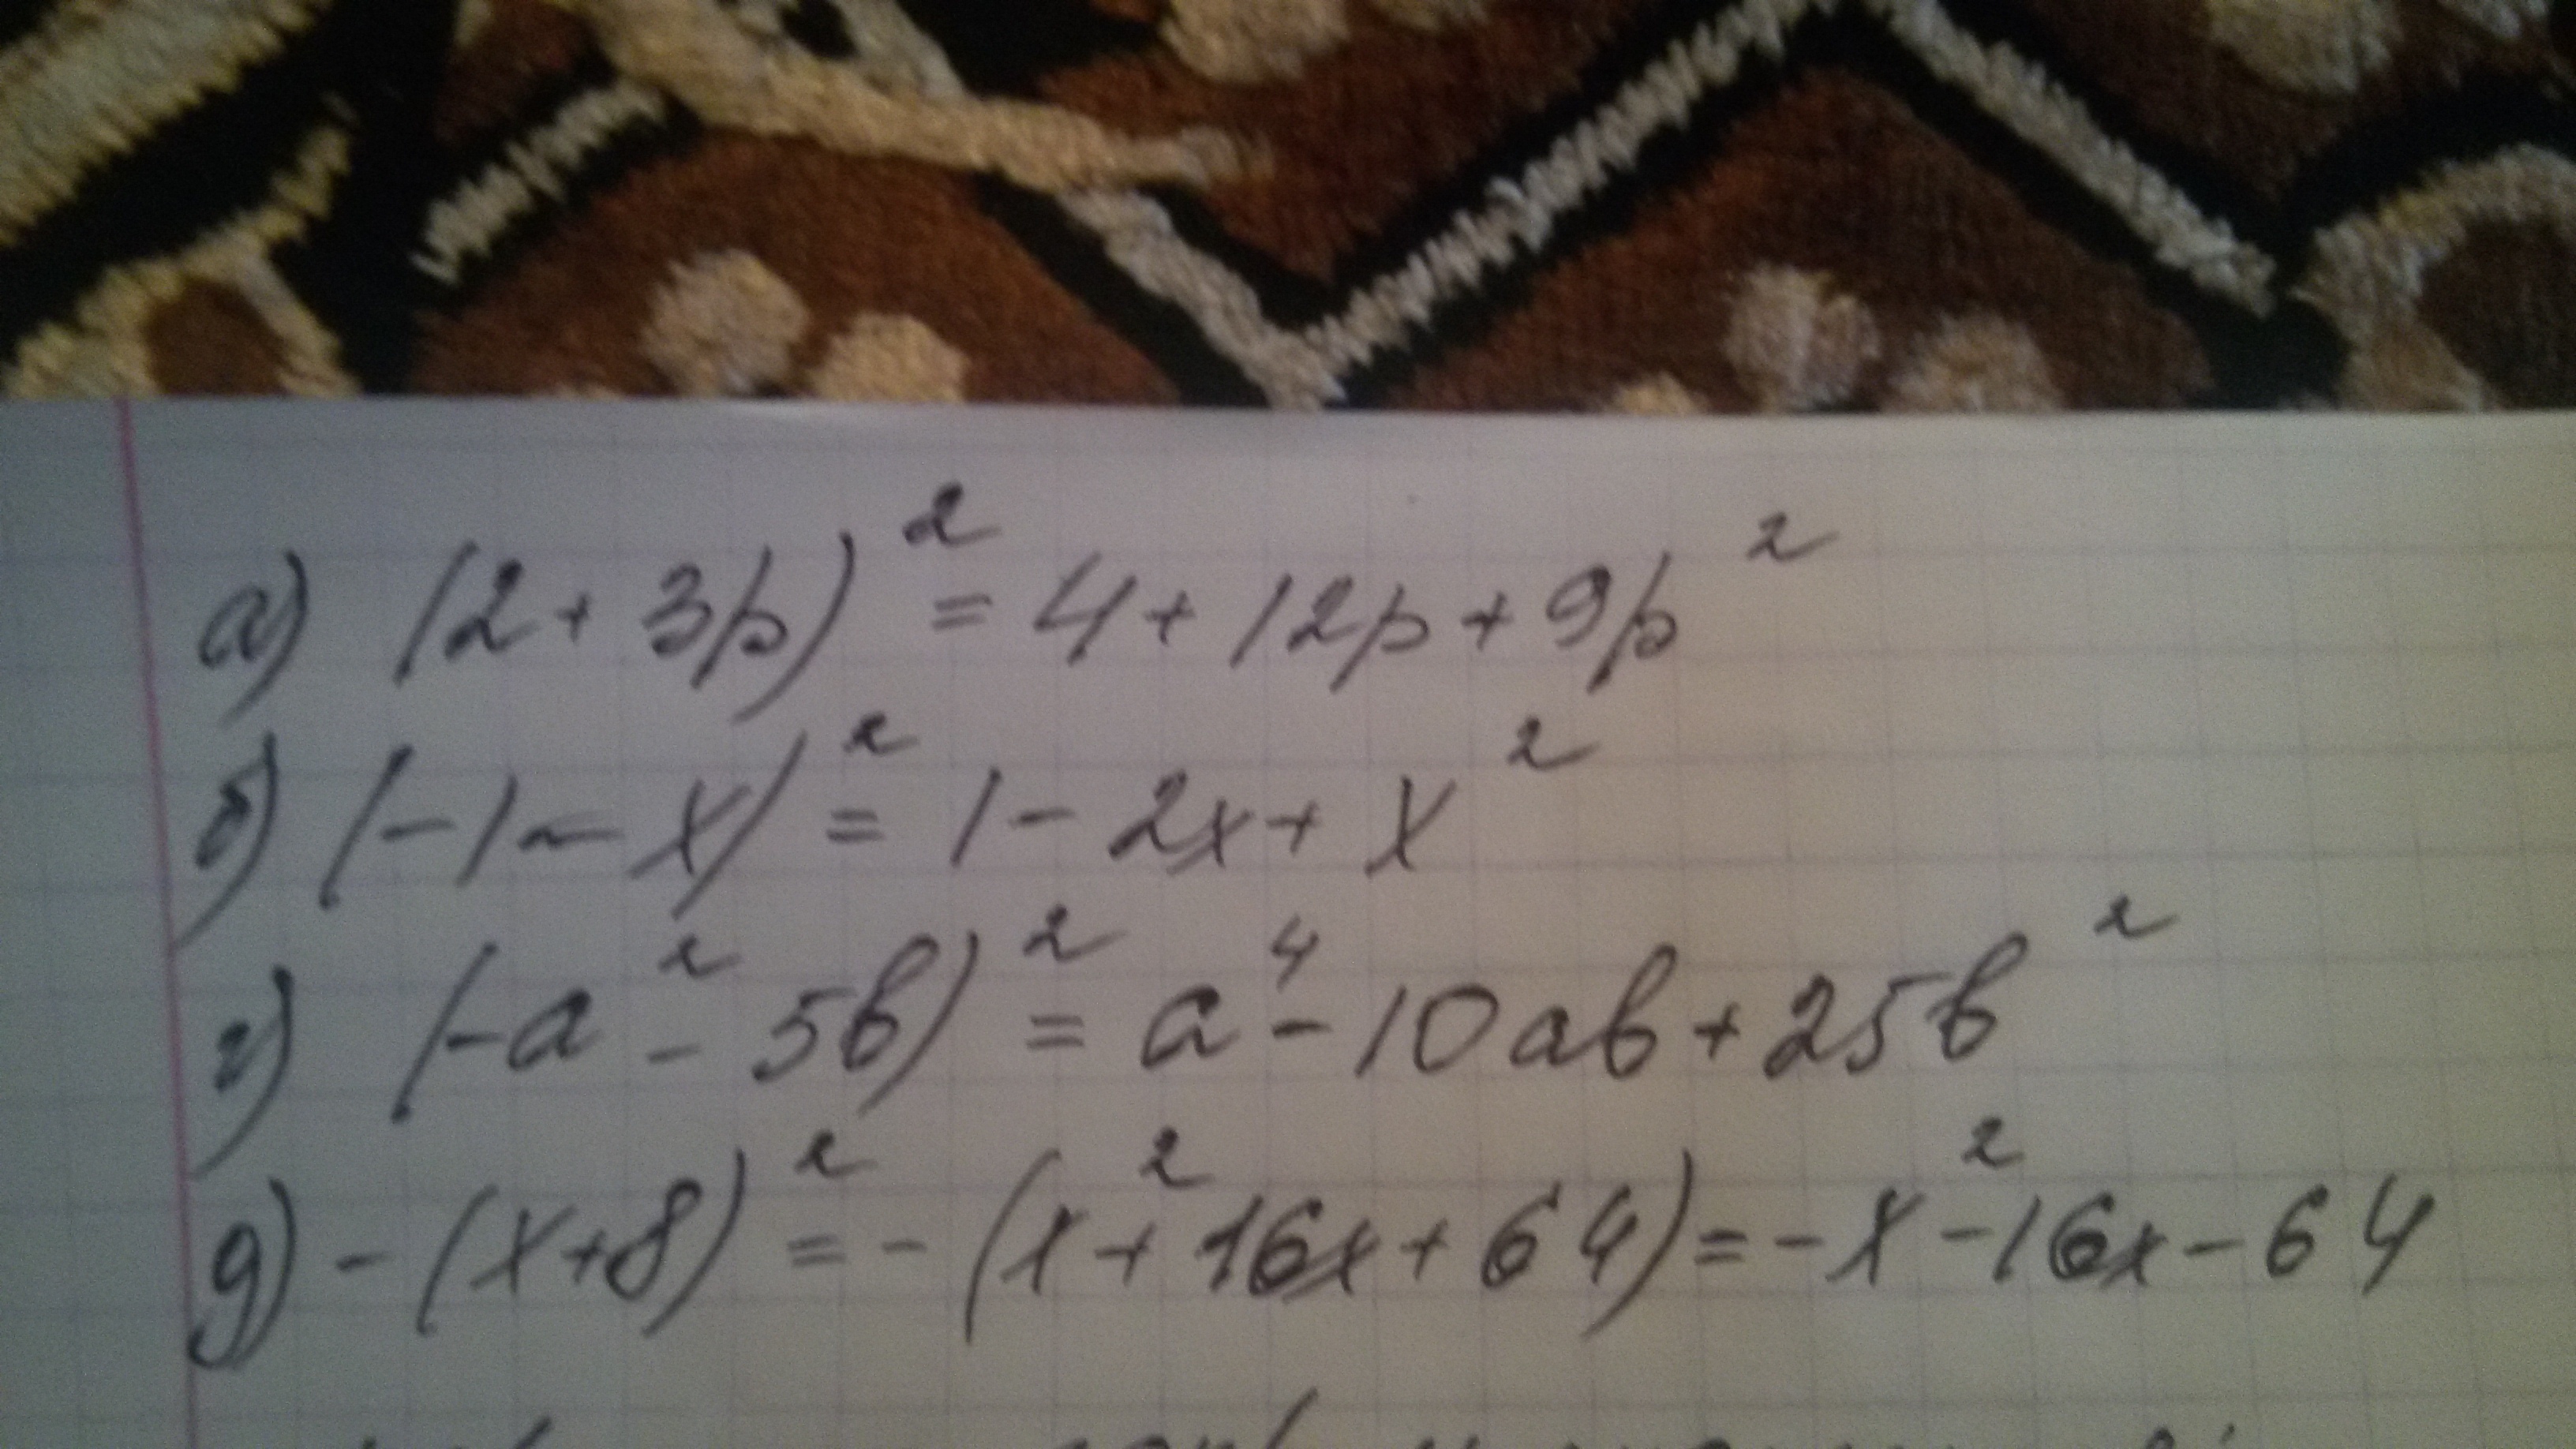 а) (2 + 3p)² = 4 + 12p + 9p²
б) (-1 - x)² = 1 - 2x + x²
г) (-a² - 5b)² = a⁴ - 10ab + 25b²
д) -(x+8)² = -(x² + 16x + 64) = -x² - 16x - 64